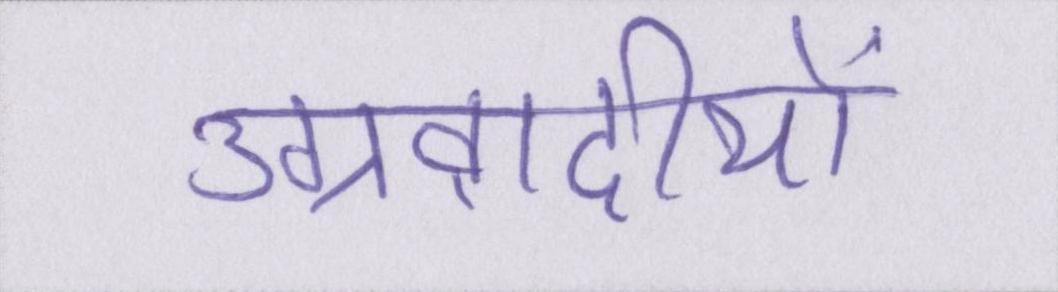 उग्रवादीयों